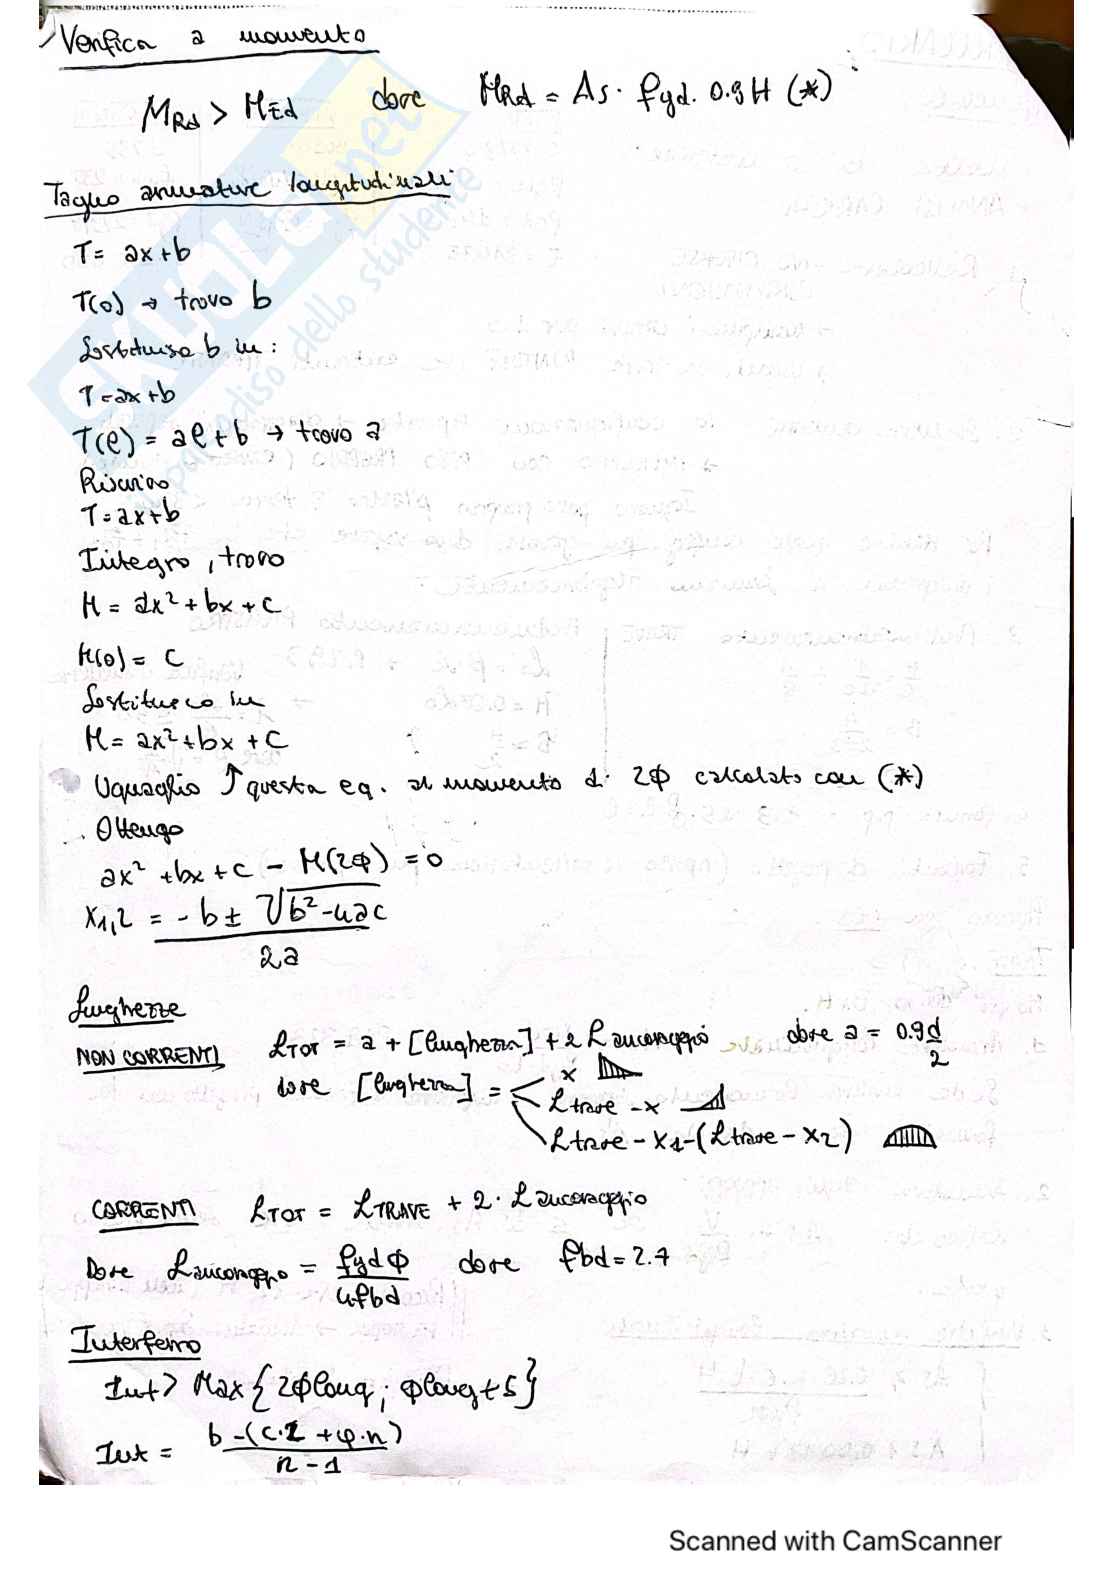 Verifica a momento
MRd > MEd dove MRd = As · fyd · 0.9H (*)
Taglio armature longitudinali
T = ax+b
T(0) → trovo b
Sostituisco b in:
T=ax+b
T(ℓ) = aℓ+b → trovo a
Riscrivo
T=ax+b
Integro, trovo
M = ax² + bx + c
M(0) = c
Sostituisco in
M = ax²+bx + C
Uguaglio ↑ questa eq. al momento di 2Φ calcolato con (*)
Ottengo
ax² + bx + c - M(2Φ) = 0
X1,2 = -b ± √b²-4ac
2a
Lunghezze
NON CORRENTI LTOT = a + [lunghezza] + 2 L ancoraggio dove a = 0.9d/2
dove [lunghezza] = x
Ltrave - x
Ltrave - x1 - (Ltrave - x2)
CORRENTI LTOT = LTRAVE + 2 · L ancoraggio
Dove Lancoraggio = fydΦ/4fbd dove fbd = 2.7
Interferro
Int > Max { 2Φlong ; Φlong + 5 }
Int = b-(c·2 + φ·n)
n-1
SKUOLA.net
il paradiso dello studente
Scanned with CamScanner